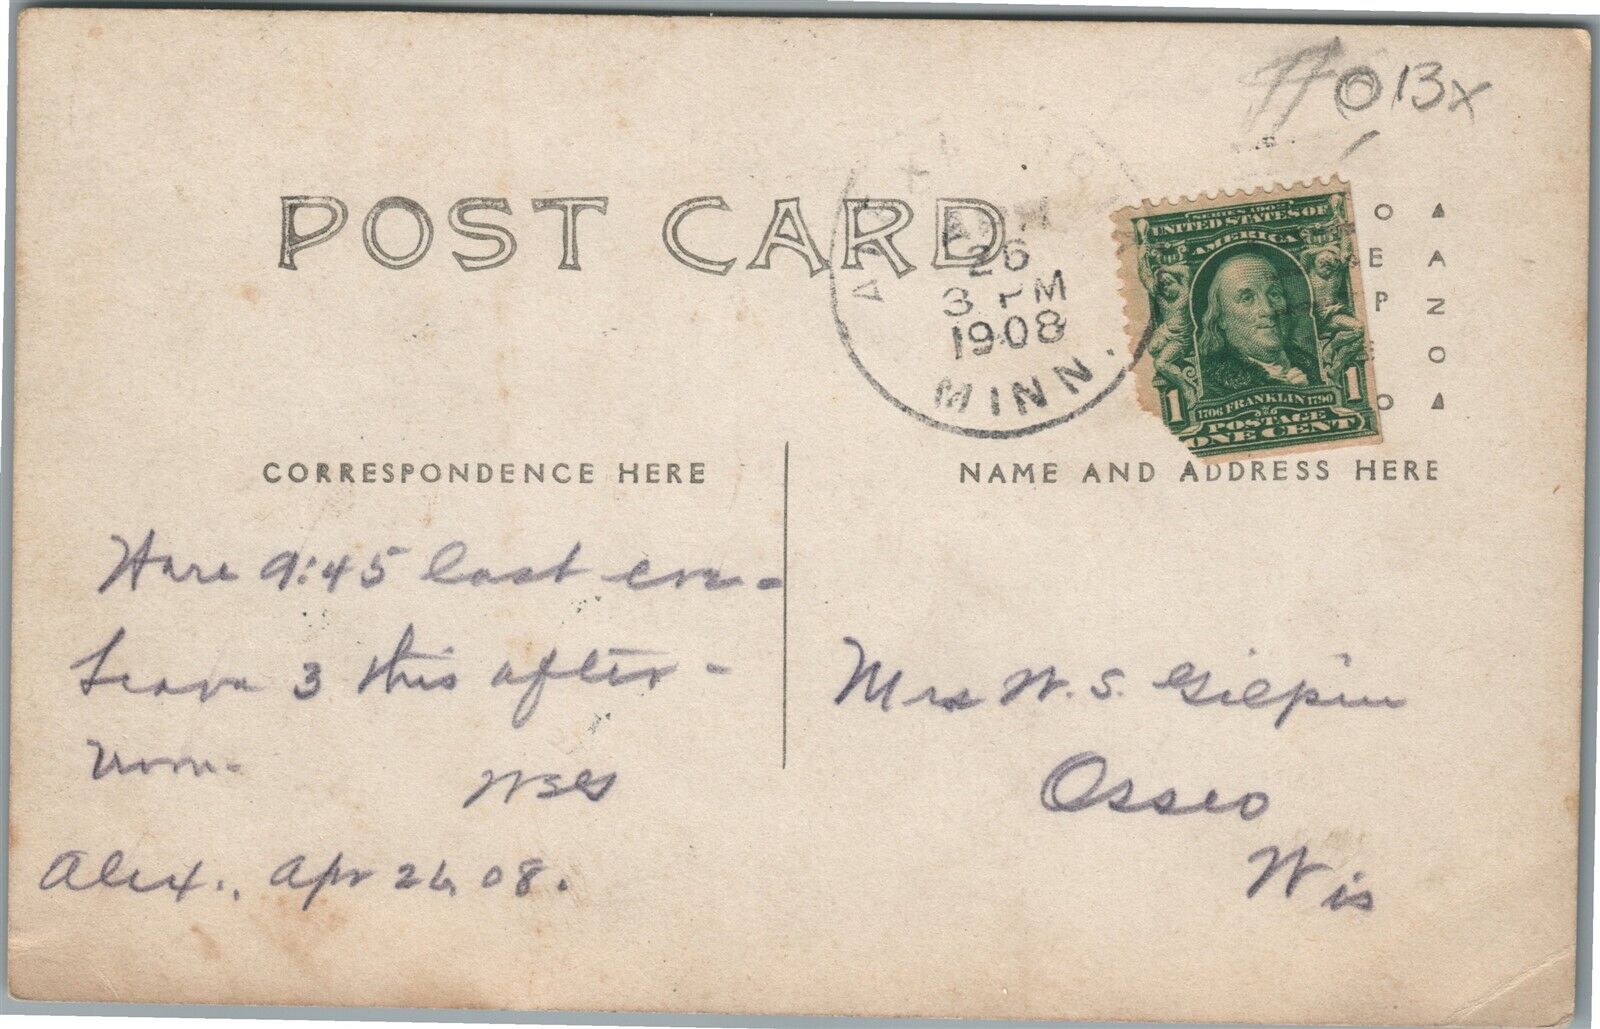 013x
POST CARD
26
3 PM
1908
MINN.
SERIES 1902
UNITED STATES OF
AMERICA
1 1
1706 FRANKLIN 1790
POSTAGE
ONE CENT
CORRESPONDENCE HERE
NAME AND ADDRESS HERE
Here 9:45 last eve-
Leave 3 this after-
noon.
Alex., Apr 26, 08.
Mrs W. S. Gilpin
Osseo
Wis